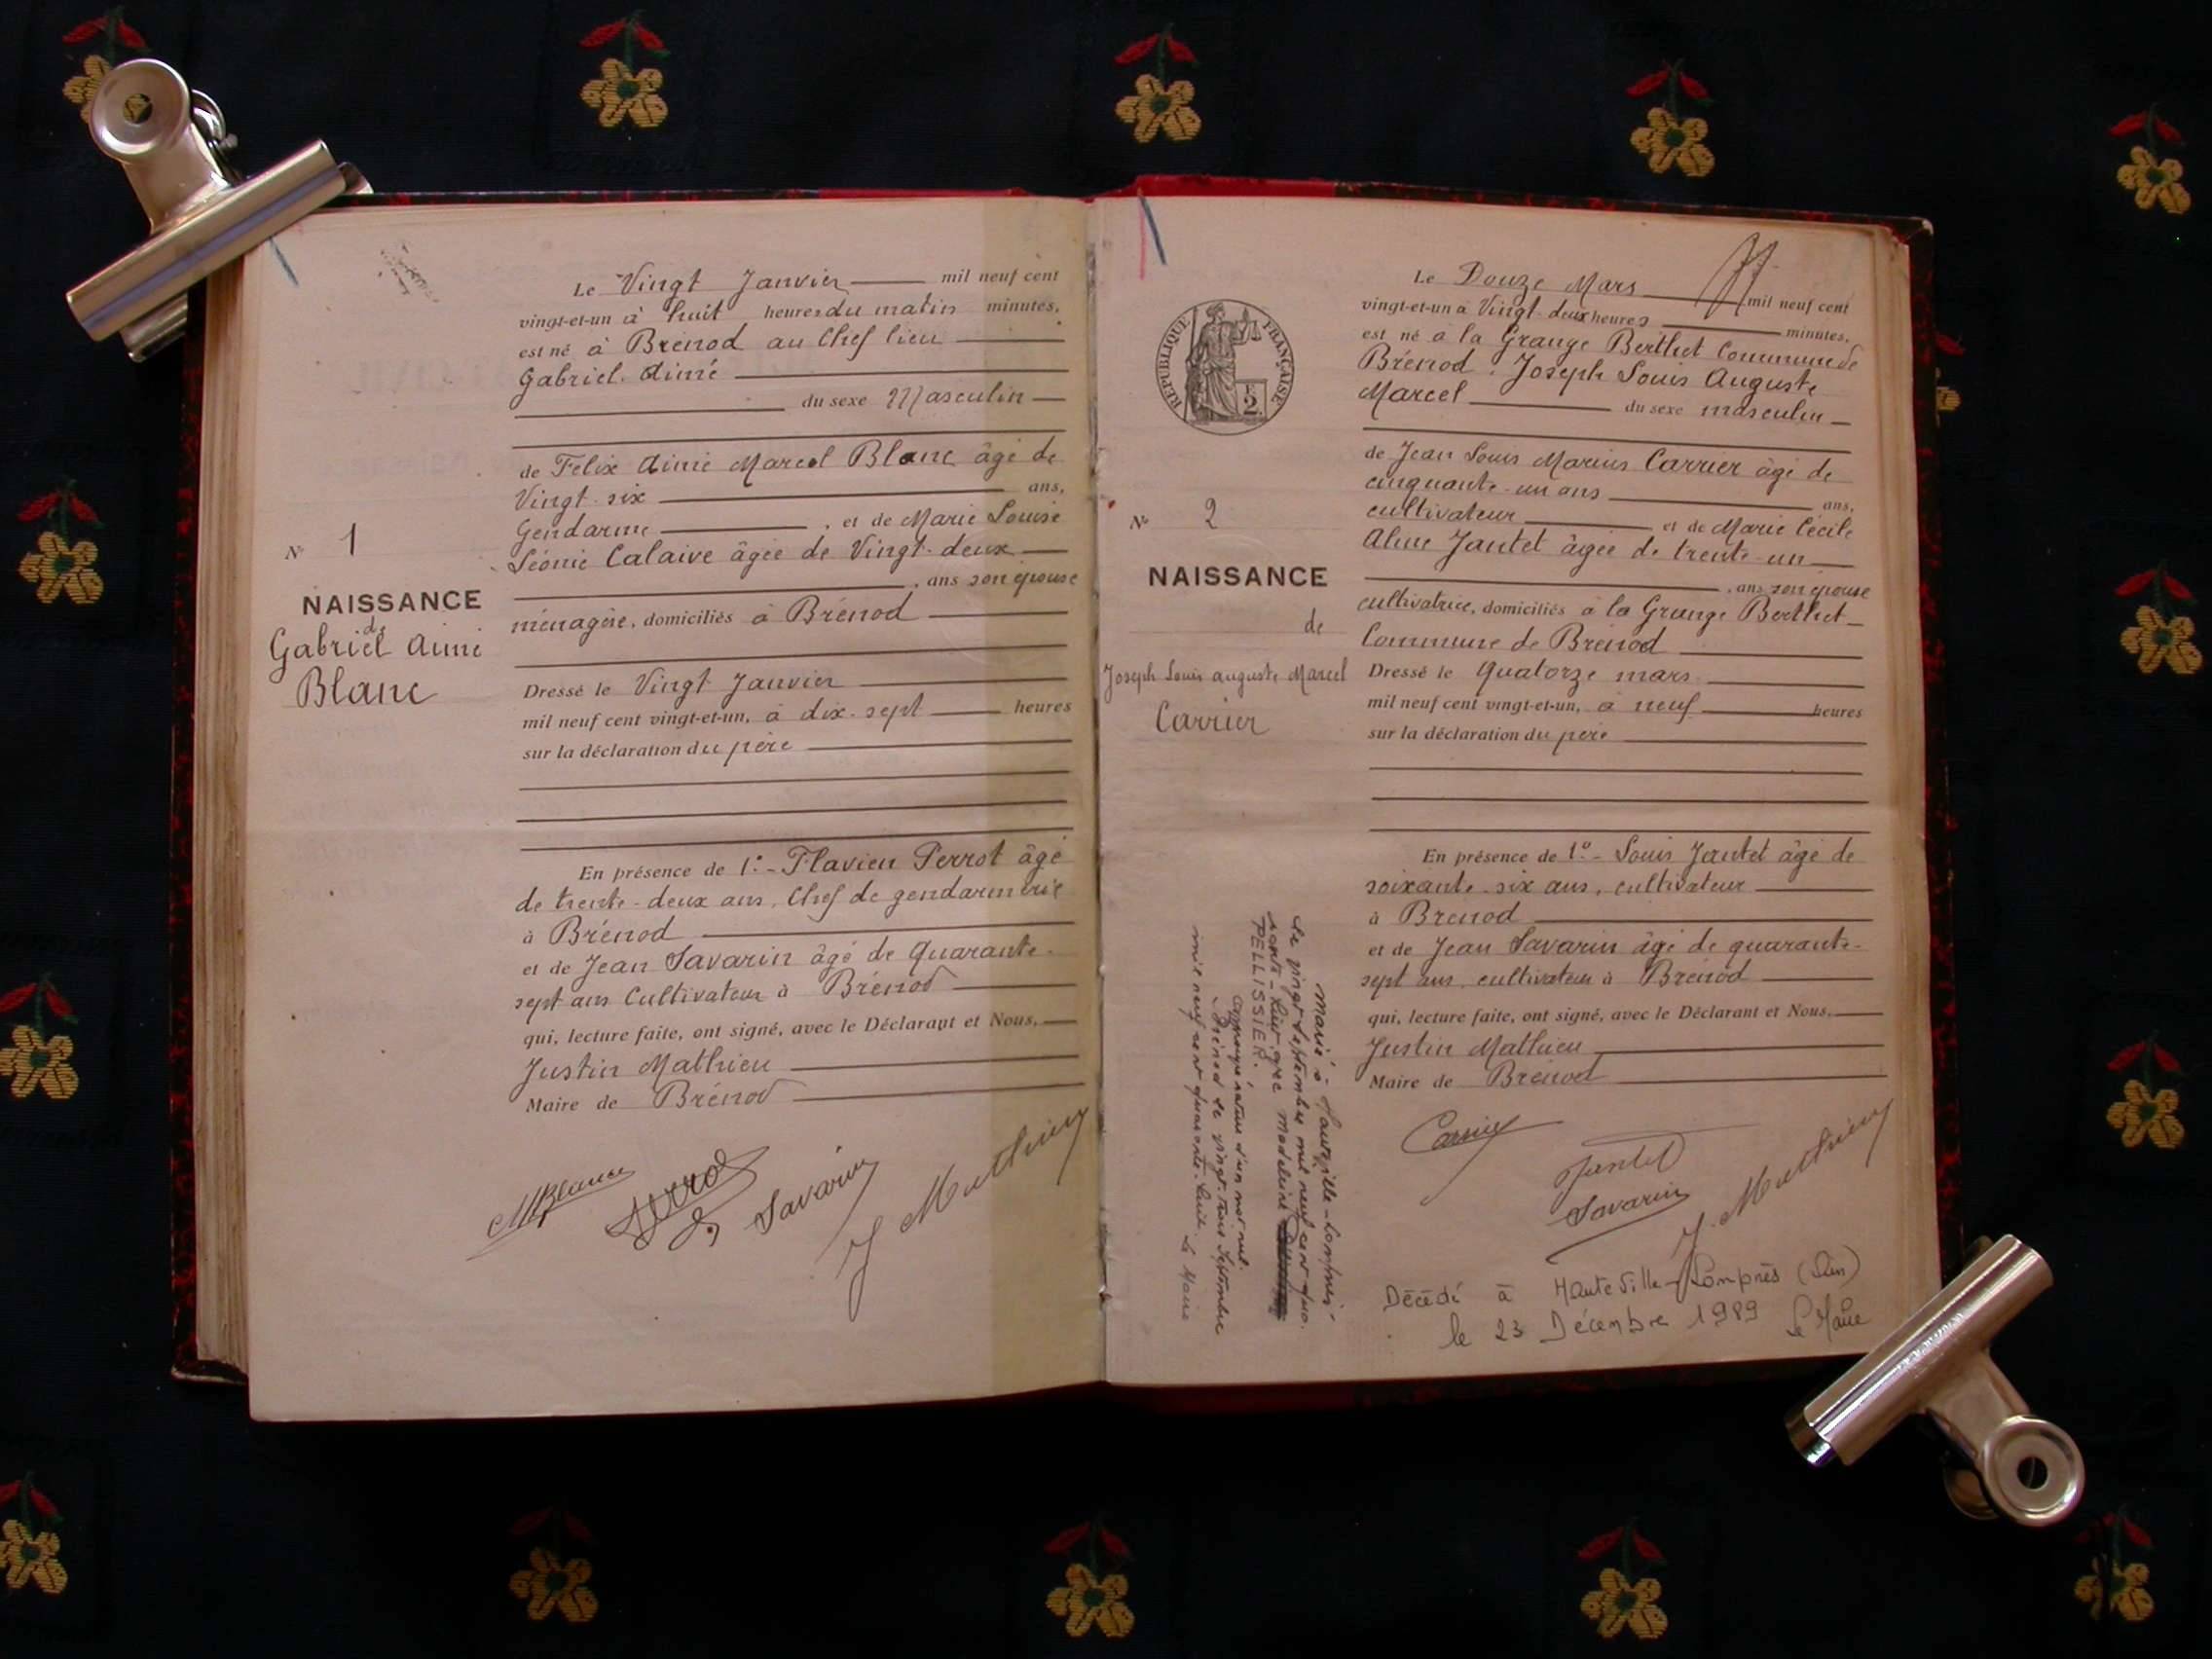 Le Vingt Janvier mil neuf cent
vingt-et-un à huit heures du matin minutes,
est né à Brénod au Chef lieu
Gabriel Aimé
du sexe Masculin
de Félix Aimé Marcel Blanc âgé de
Vingt-six ans,
Gendarme, et de Marie Louise
Léonie Calaive âgée de Vingt-deux
, ans son épouse
ménagère, domiciliés à Brénod
Dressé le Vingt Janvier
mil neuf cent vingt-et-un, à dix-sept heures
sur la déclaration du père
En présence de 1.° - Flavien Perrot âgé
de trente-deux ans, Chef de gendarmerie
à Brénod
et de Jean Savarin âgé de Quarante-
sept ans Cultivateur à Brénod
qui, lecture faite, ont signé, avec le Déclarant et Nous,
Justin Mathieu
Maire de Brénod
N° 1
NAISSANCE
de
Gabriel Aimé
Blanc
MBlanc
Perrot
Savarin
J Mathieu
RÉPUBLIQUE FRANÇAISE
2
Le Douze Mars mil neuf cent
vingt-et-un à Vingt-deux heures minutes,
est né à la Grange Berthet Commune de
Brénod, Joseph Louis Auguste
Marcel du sexe masculin
de Jean Louis Marius Carrier âgé de
cinquante-un ans ans,
cultivateur et de Marie Cécile
Aline Jantet âgée de trente-un
, ans son épouse
cultivatrice, domiciliés à la Grange Berthet
Commune de Brénod
Dressé le Quatorze mars
mil neuf cent vingt-et-un, à neuf heures
sur la déclaration du père
En présence de 1° - Louis Jantet âgé de
soixante-six ans, cultivateur
à Brénod
et de Jean Savarin âgé de quarante-
sept ans, cultivateur à Brénod
qui, lecture faite, ont signé, avec le Déclarant et Nous,
Justin Mathieu
Maire de Brénod
N° 2
NAISSANCE
de
Joseph Louis Auguste Marcel
Carrier
Marié à Hauteville-Lompnes
le vingt septembre mil neuf cent qua-
rante-huit avec Madeleine
PELLISSIER.
rayé d'un mot nul.
Brénod le vingt-trois septembre
mil neuf cent quarante-huit. Le Maire
Carrier
Jantet
Savarin
J. Mathieu
Décédé à Hauteville-Lompnès (Ain)
le 23 Décembre 1989 Le Maire